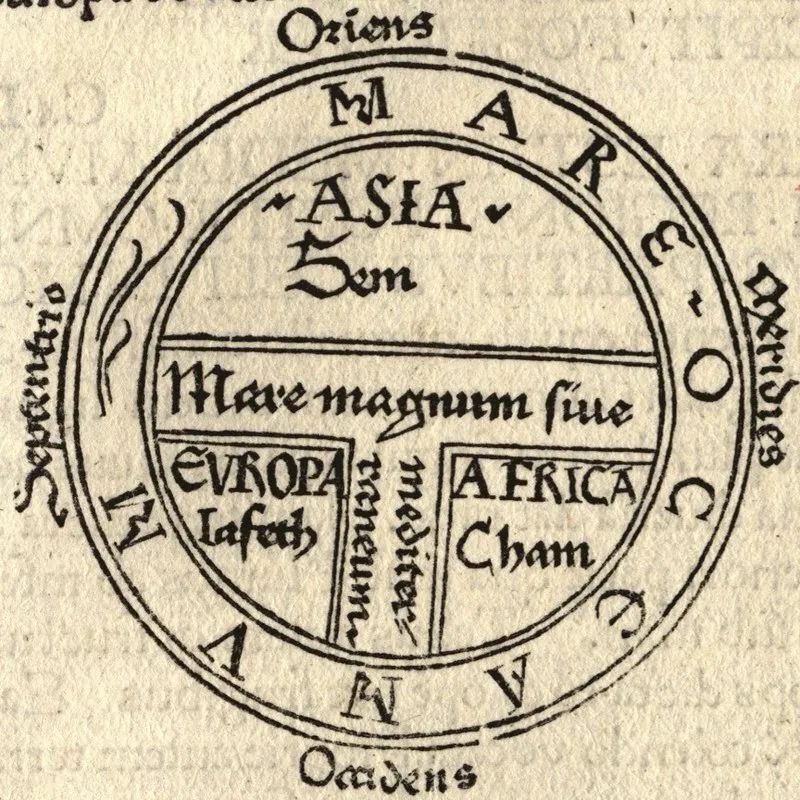 Oriens
MARE OCEANVM
Septentrio
Meridies
ASIA
Sem
Mare magnum ſiue
mediter⸗
raneum
EVROPA
Iafeth
AFRICA
Cham
Occidens